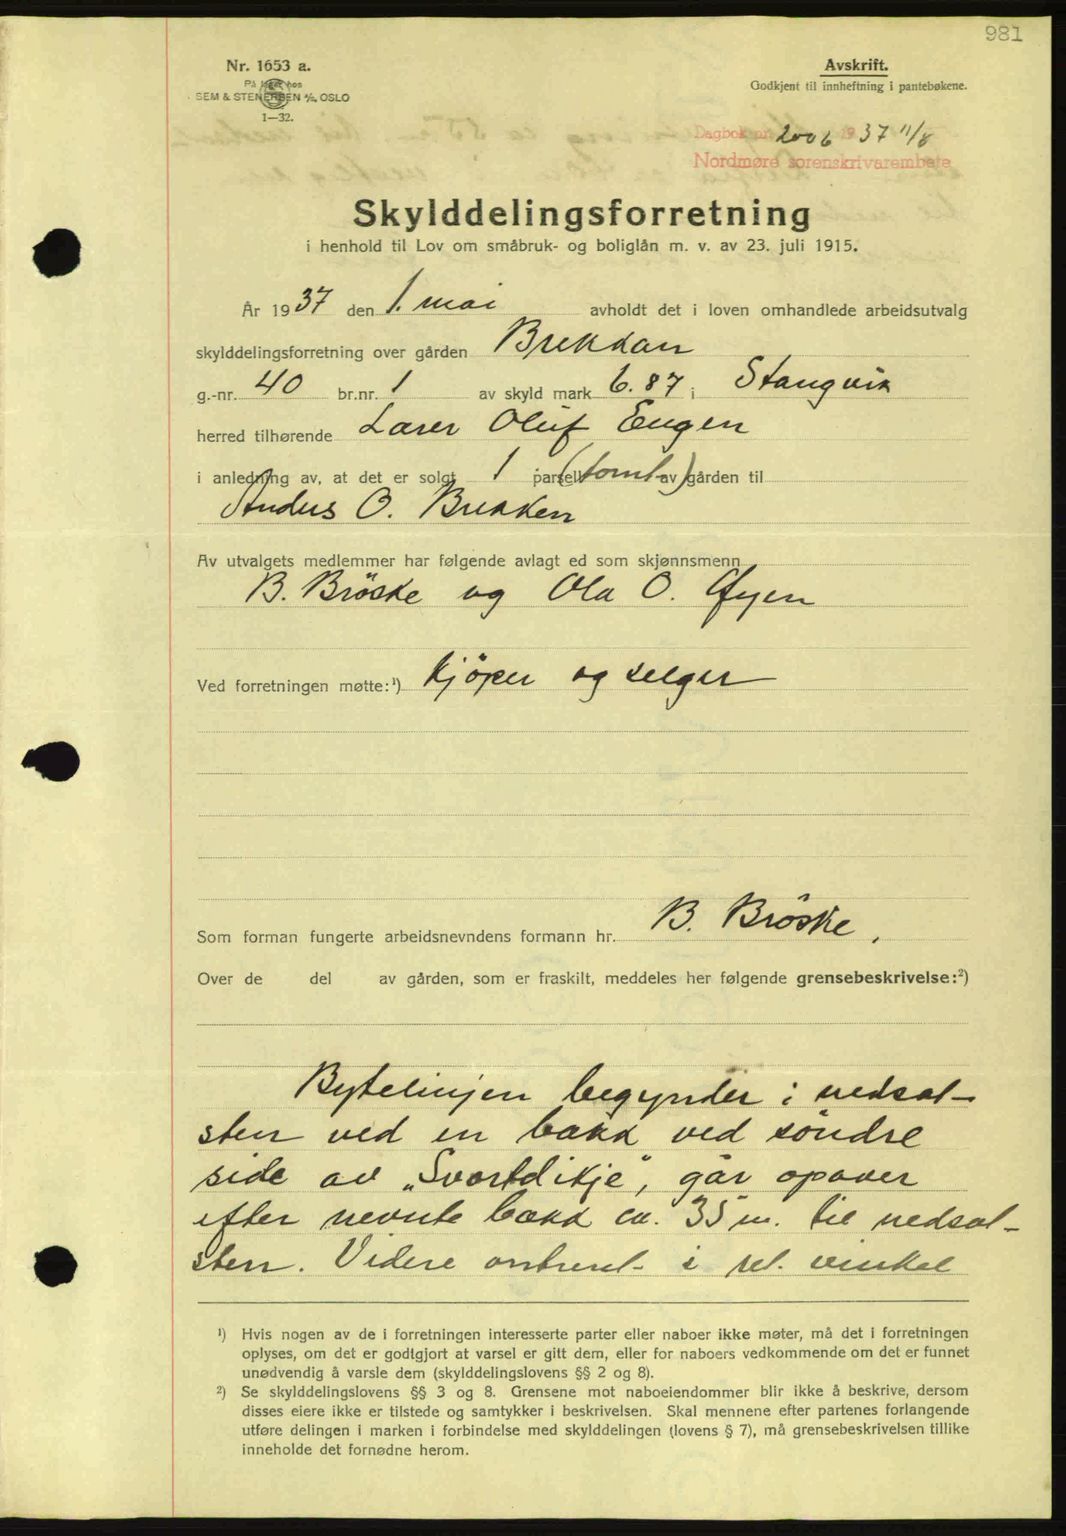 981
Nr. 1653 a.
På lager hos
SEM & STENERSEN A/S, OSLO
1—32.
Avskrift.
Godkjent til innheftning i pantebøkene.
Dagbok nr. 2006 1937 11/8
Nordmøre sorenskrivarembete
Skylddelingsforretning
i henhold til Lov om småbruk- og boliglån m. v. av 23. juli 1915.
År 1937 den 1. mai avholdt det i loven omhandlede arbeidsutvalg
skylddelingsforretning over gården Brekkan
g.-nr. 40 br.nr. 1 av skyld mark 6.87 i Stangvik
herred tilhørende Larer Oluf Eugen
i anledning av, at det er solgt 1 parsell (tomt) av gården til
Anders O. Brekken
Av utvalgets medlemmer har følgende avlagt ed som skjønnsmenn
B. Bröske og Ola O. Øyen
Ved forretningen møtte:¹) Kjöper og selger
Som forman fungerte arbeidsnevndens formann hr. B. Bröske,
Over de del av gården, som er fraskilt, meddeles her følgende grensebeskrivelse:²)
Bytelinjen begynder i nedsat-
sten ved en bækk ved söndre
side av „Svartdikje", går opover
efter nevnte bækk ca. 35 m. til nedsat-
sten. Videre omtrent i ret. vinkel
¹) Hvis nogen av de i forretningen interesserte parter eller naboer ikke møter, må det i forretningen
oplyses, om det er godtgjort at varsel er gitt dem, eller for naboers vedkommende om det er funnet
unødvendig å varsle dem (skylddelingslovens §§ 2 og 8).
²) Se skylddelingslovens §§ 3 og 8. Grensene mot naboeiendommer blir ikke å beskrive, dersom
disses eiere ikke er tilstede og samtykker i beskrivelsen. Skal mennene efter partenes forlangende
utføre delingen i marken i forbindelse med skylddelingen (lovens § 7), må grensebeskrivelsen tillike
inneholde det fornødne herom.